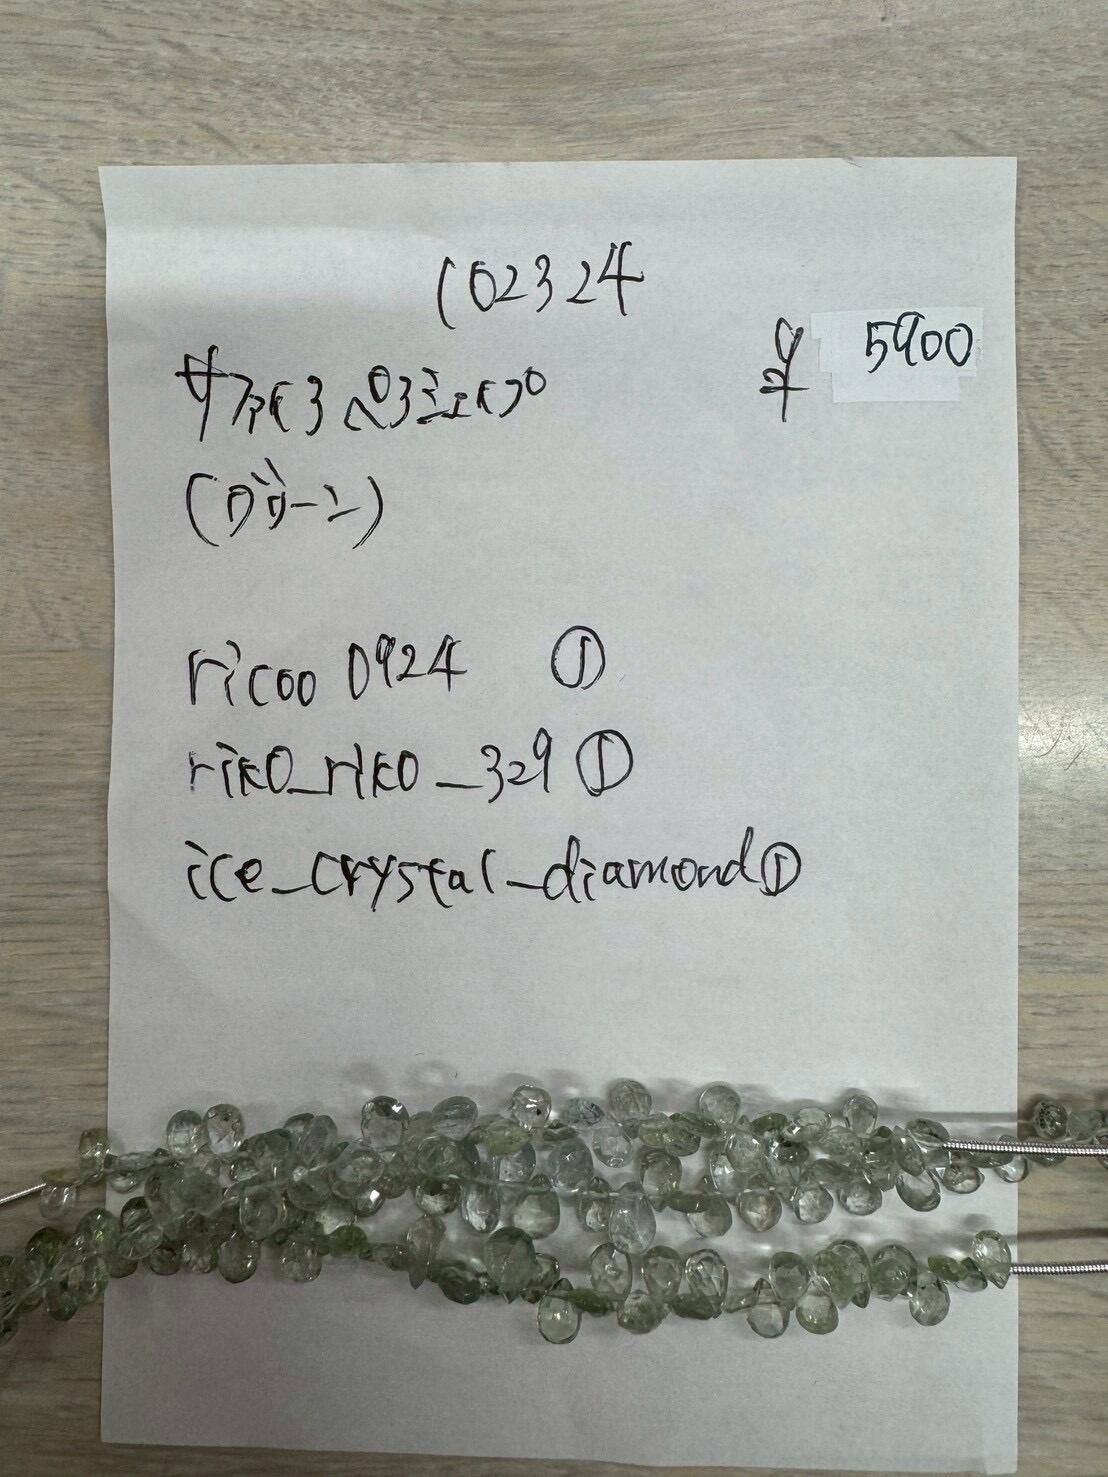 102324
¥ 5900
サファイヤ ペアシェイプ
(グリーン)
ricoo0924 ①
riko_riko_329 ①
ice_crystal_diamond ①